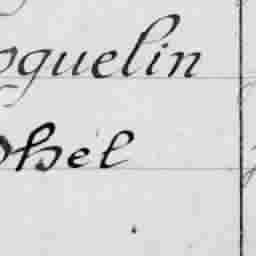 oguelin
ohel